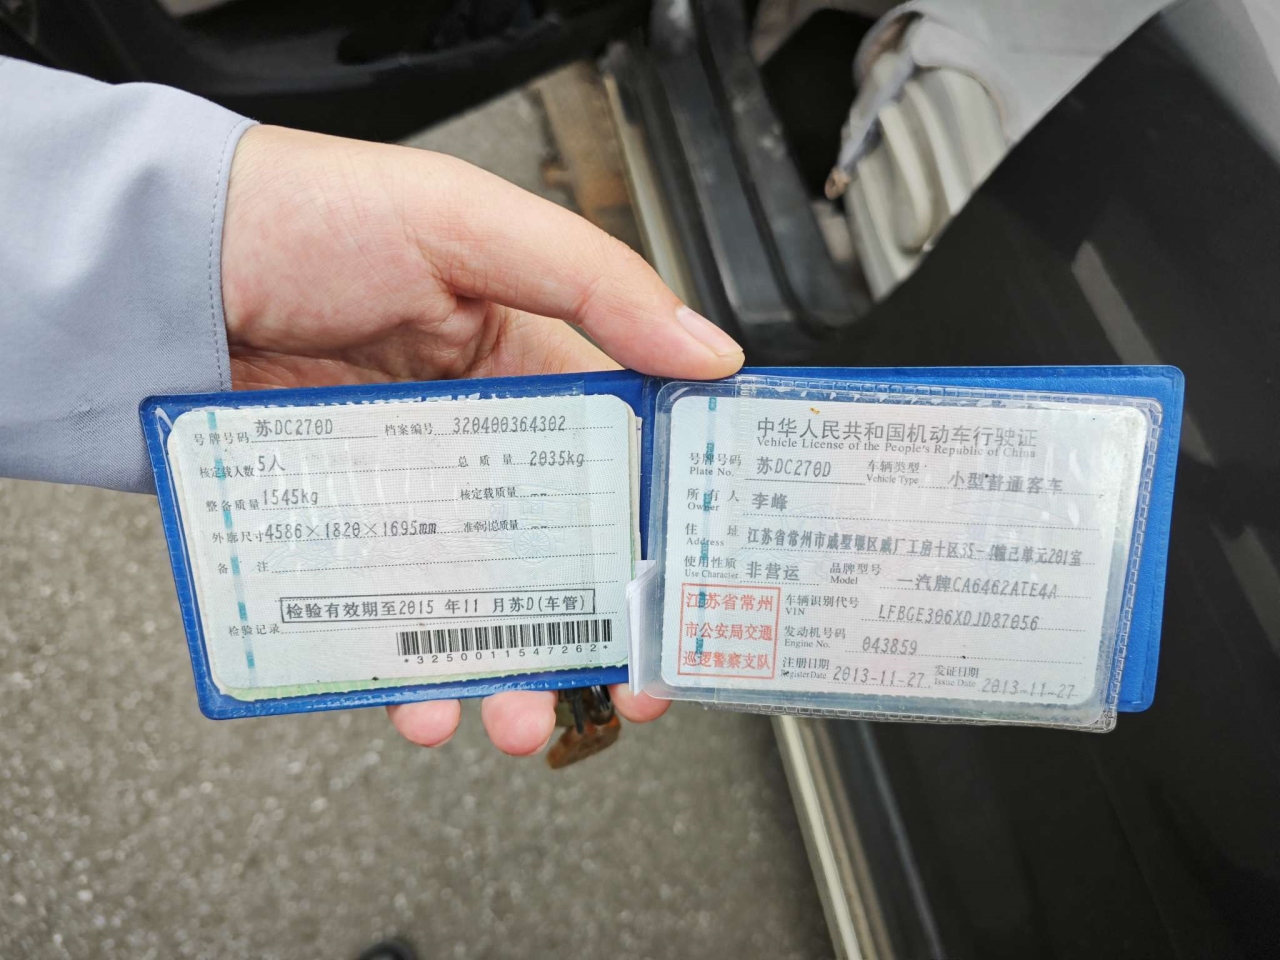 号牌号码 苏DC270D 档案编号 320400364302
核定载人数 5人 总 质 量 2035kg
整备质量 1545kg 核定载质量 --
外廓尺寸 4586×1820×1695mm 准牵引总质量 --
备 注
检验有效期至2015 年11 月苏D(车管)
检验记录
*3250011547262*
中华人民共和国机动车行驶证
Vehicle License of the People's Republic of China
号牌号码 苏DC270D 车辆类型 小型普通客车
Plate No. Vehicle Type
所 有 人 李峰
Owner
住 址 江苏省常州市戚墅堰区戚厂工房十区35-4幢己单元201室
Address
使用性质 非营运 品牌型号 一汽牌CA6462ATE4A
Use Character Model
江苏省常州
市公安局交通
巡逻警察支队
车辆识别代号 LFBGE306XDJD87056
VIN
发动机号码 043859
Engine No.
注册日期 2013-11-27 发证日期 2013-11-27
Register Date Issue Date